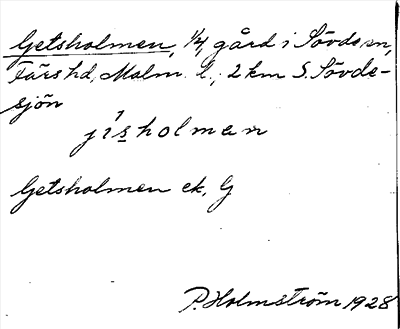 Getsholmen, 1/4, gård i Sövde sn,
Färs hd, Malm. l., 2 km S. Sövde-
sjön
jísholman
Getsholmen ek, G
P. Holmström 1928